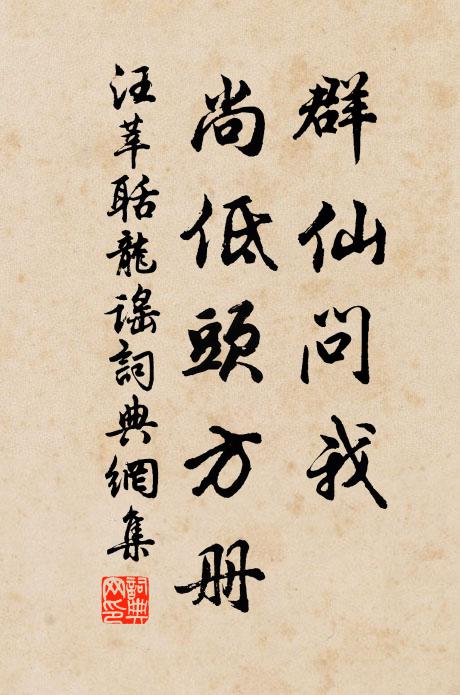 群仙問我
尚低頭方册
汪莘聒龍謠詞典網集
詞典網印